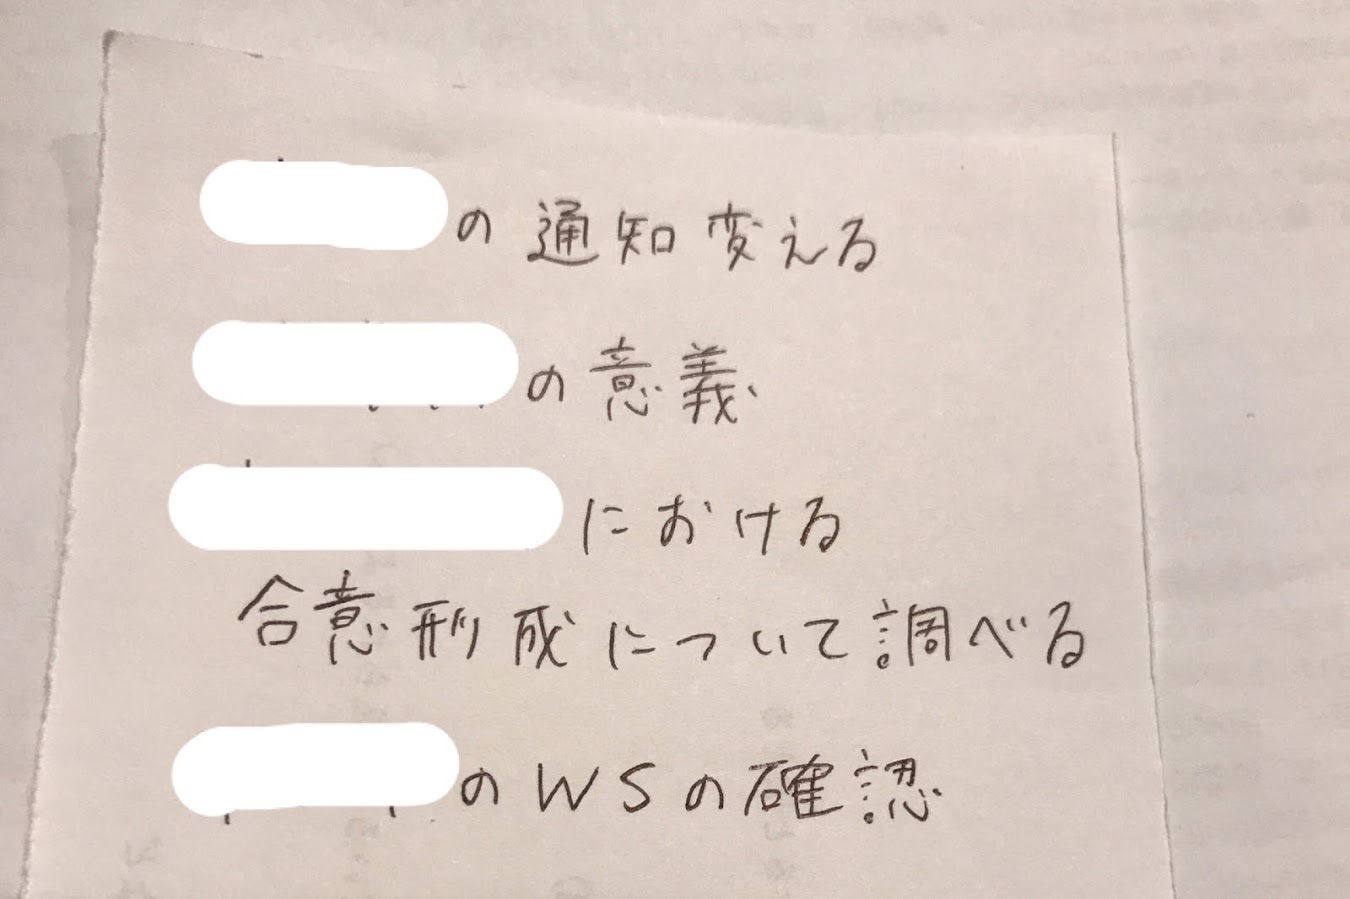 の通知変える
の意義
における
合意形成について調べる
のWSの確認